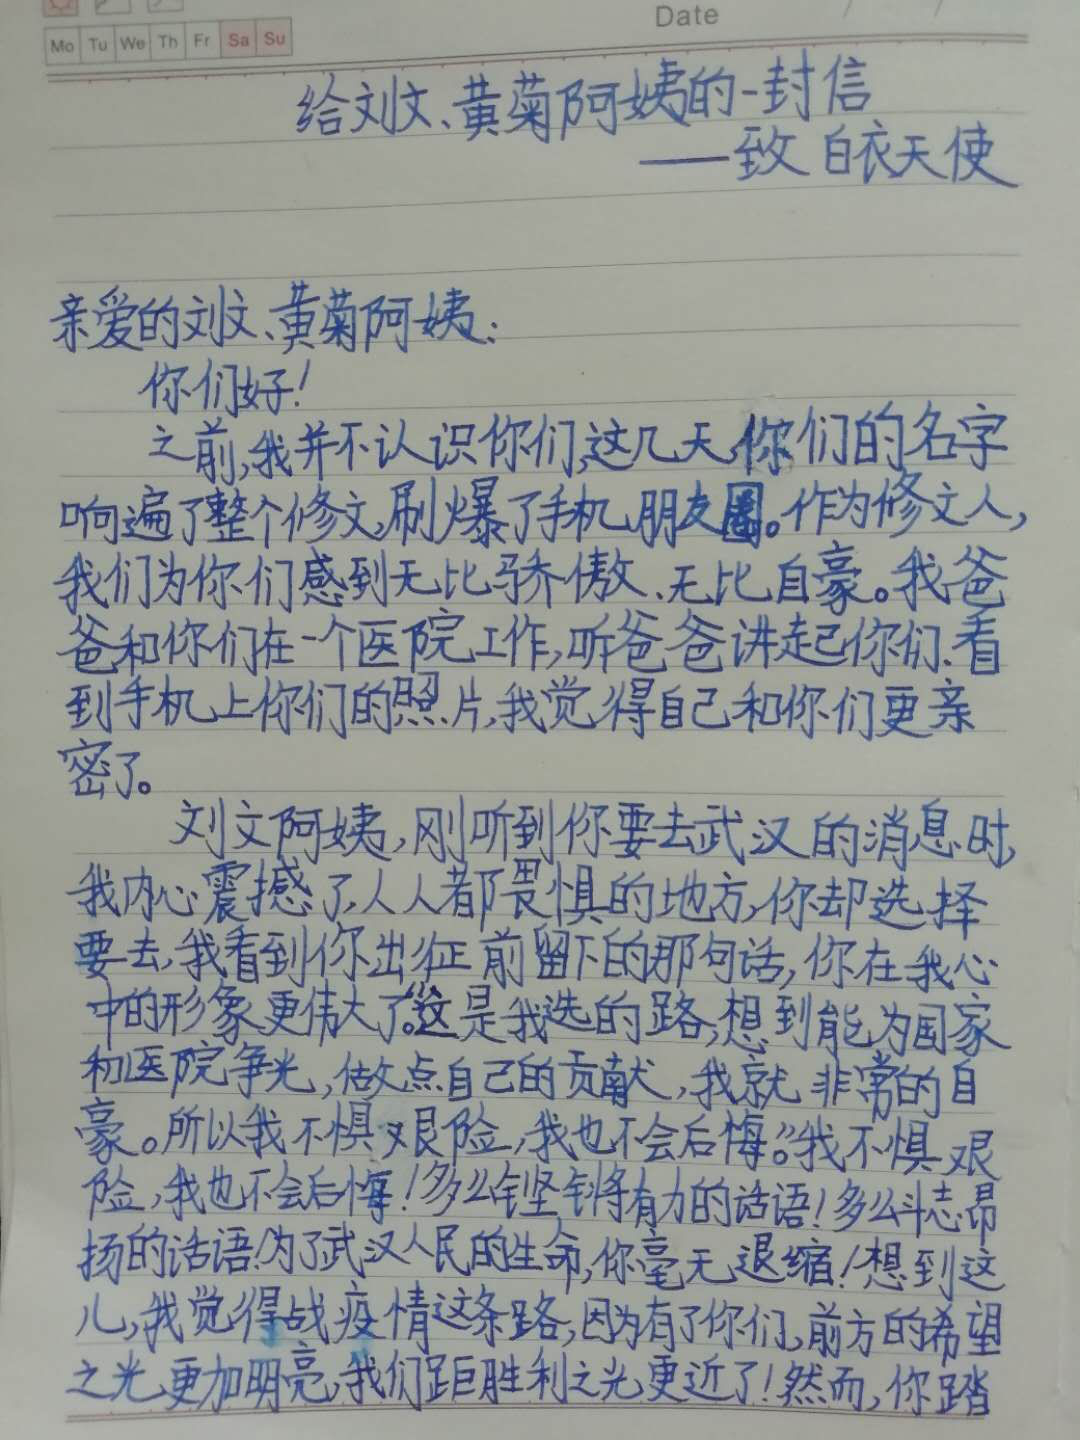 Mo Tu We Th Fr Sa Su
Date / /
给刘文、黄菊阿姨的一封信
——致白衣天使
亲爱的刘文、黄菊阿姨:
你们好!
之前,我并不认识你们,这几天,你们的名字
响遍了整个修文,刷爆了手机朋友圈。作为修文人,
我们为你们感到无比骄傲、无比自豪。我爸
爸和你们在一个医院工作,听爸爸讲起你们、看
到手机上你们的照片,我觉得自己和你们更亲
密了。
刘文阿姨,刚听到你要去武汉的消息时,
我内心震撼了,人人都畏惧的地方,你却选择
要去,我看到你出征前留下的那句话,你在我心
中的形象更伟大了。“这是我选的路,想到能为国家
和医院争光,做点自己的贡献,我就非常的自
豪。所以我不惧艰险,我也不会后悔。”我不惧艰
险,我也不会后悔!多么铿锵有力的话语!多么斗志昂
扬的话语!为了武汉人民的生命,你毫无退缩!想到这
儿,我觉得战疫情这条路,因为有了你们,前方的希望
之光更加明亮,我们距胜利之光更近了!然而,你踏